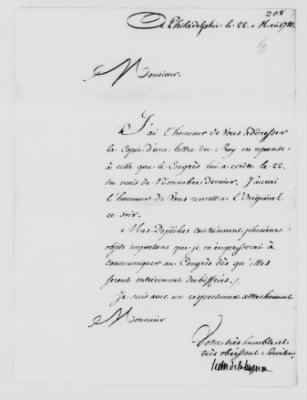 208
A Philadelphie le 22. Mai 1781.
Monsieur.
J'ai l'honneur de Vous addresser
la Copie d'une lettre du Roy en reponse
à celle que le Congrès lui a écrite le 22.
du mois de Novembre dernier. J'aurai
l'honneur de Vous remettre l'Original
ce soir.
Mes Depêches contiennent plusieurs
objets importans que je m'empresserai à
communiquer au Congrès dès qu'elles
seront entierement dechiffrées.
Je suis avec un respectueux attachement
Monsieur
Votre très humble et
très obeissant Serviteur
le che de la luzerne